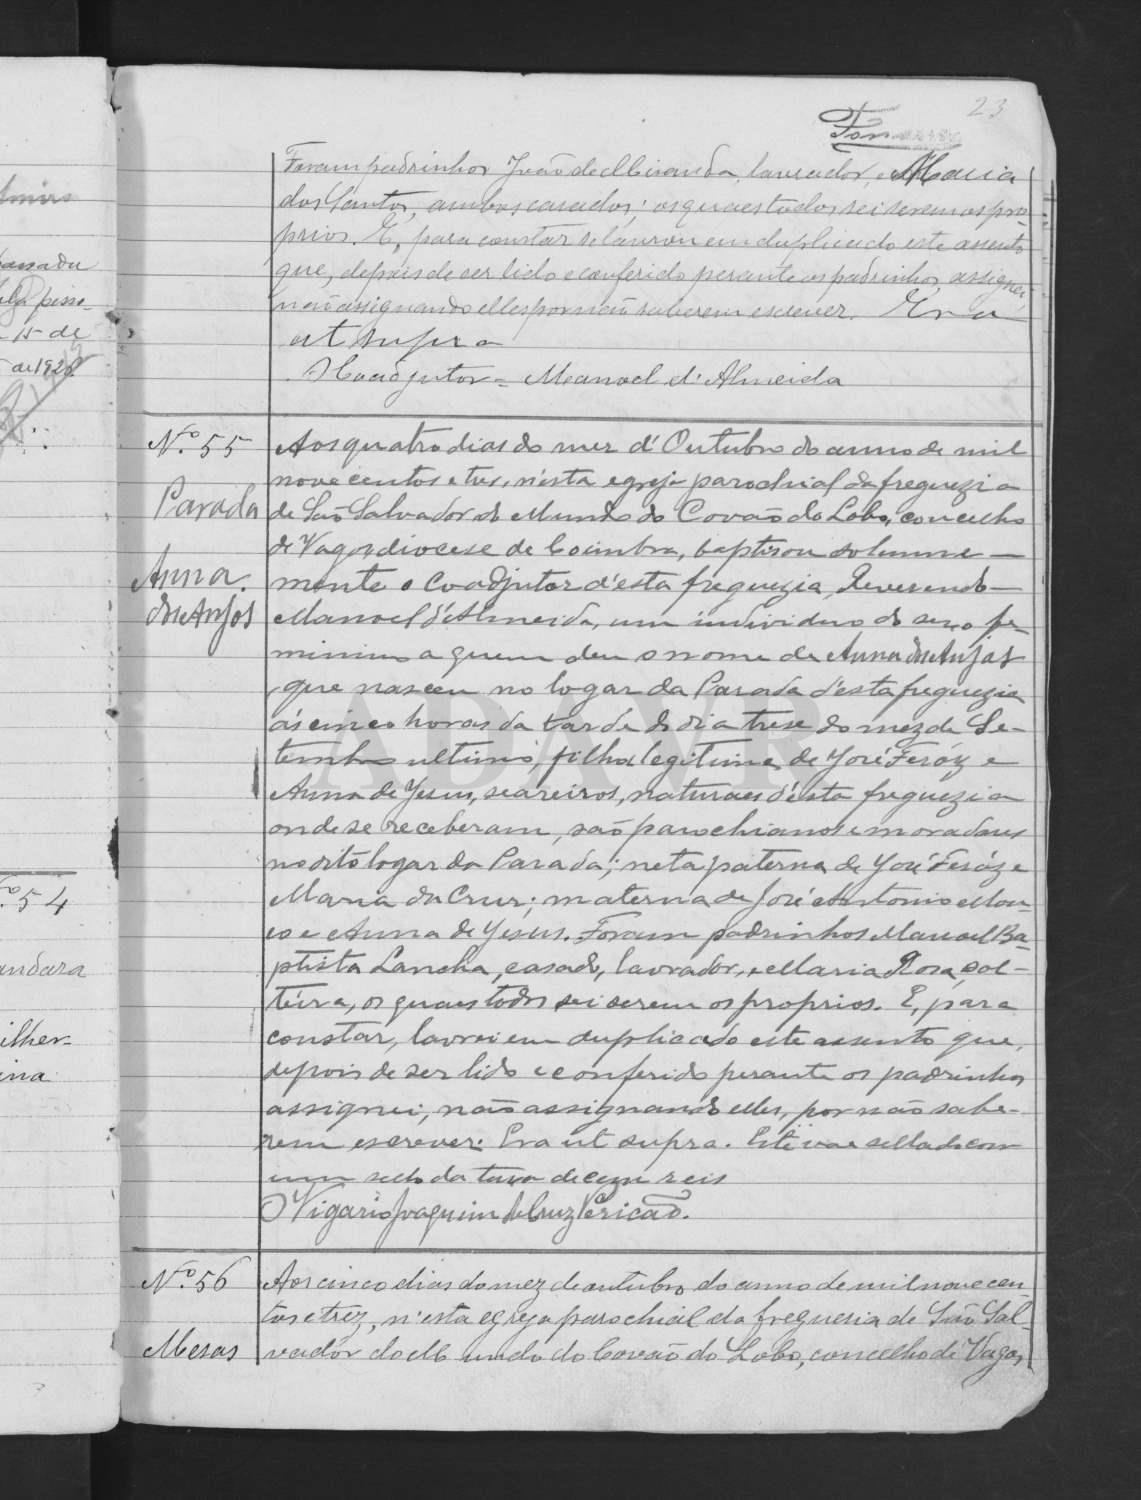 23
Foram padrinhos João de Miranda, lavrador, e Maria
dos Santos, ambos casados; os quaes todos sei serem os pro
prios. E, para constar se lavrou em duplicado este assento
que, depois de ser lido e conferido perante os padrinhos, assignei,
não assignando elles por não saberem escrever. Era
ut supra
O Coadjutor = Manoel d'Almeida
Nº 55
Parada
Anna
dos Anjos
Aos quatro dias do mez d'Outubro do anno de mil
nove centos e tres, n'esta egreja parochial da freguezia
de São Salvador do Mundo do Covão do Lobo, concelho
de Vagos, diocese de Coimbra, baptisou solemne-
mente o Coadjutor d'esta freguezia, Reverendo
Manoel d'Almeida, um individuo do sexo fe-
minino a quem deu o nome de Anna dos Anjos
que nasceu no logar da Parada d'esta freguezia
ás cinco horas da tarde do dia treze do mez de Se-
tembro ultimo, filha legitima de José Feróz e
Anna de Jesus, seareiros, naturaes d'esta freguezia
onde se receberam, são parochianos e moradores
no dito logar da Parada; neta paterna de José Feróz e
Maria da Cruz; materna de José Antonio Mou-
co e Anna de Jesus. Foram padrinhos Manoel Ba-
ptista Lancha, casado, lavrador, e Maria Rosa, sol-
teira, os quaes todos sei serem os proprios. E, para
constar, lavrei em duplicado este assento que,
depois de ser lido e conferido perante os padrinhos
assignei, não assignando elles, por não sabe-
rem escrever. Era ut supra. Este vae sellado com
um sello da taxa de cem reis
O Vigario Joaquim da Cruz Pericão.
Nº 56
Mesas
Aos cinco dias do mez de outubro do anno de mil nove cen-
tos e trez, n'esta egreja parochial da freguesia de São Sal-
vador do Mundo do Covão do Lobo, concelho de Vagos,
passada
15 de
de 1928
º 54
andara
ilher-
ina
ADAVR